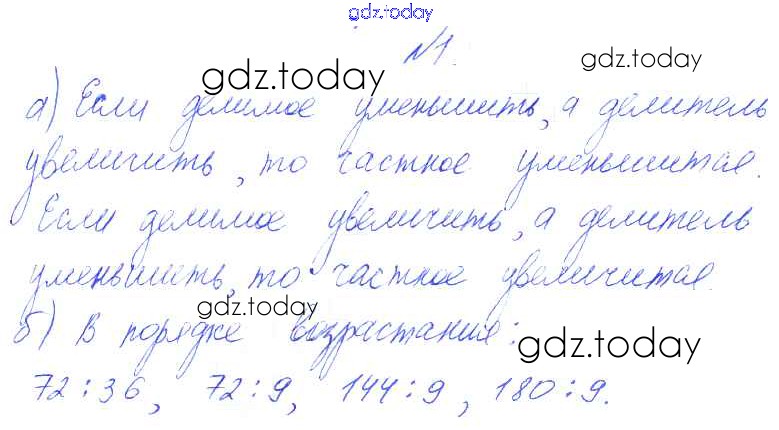 gdz.today
№1.
gdz.today
gdz.today
а) Если делимое уменьшить, а делитель
увеличить, то частное уменьшится.
Если делимое увеличить, а делитель
уменьшить, то частное увеличится.
gdz.today
б) В порядке возрастания:
gdz.today
72:36, 72:9, 144:9, 180:9.